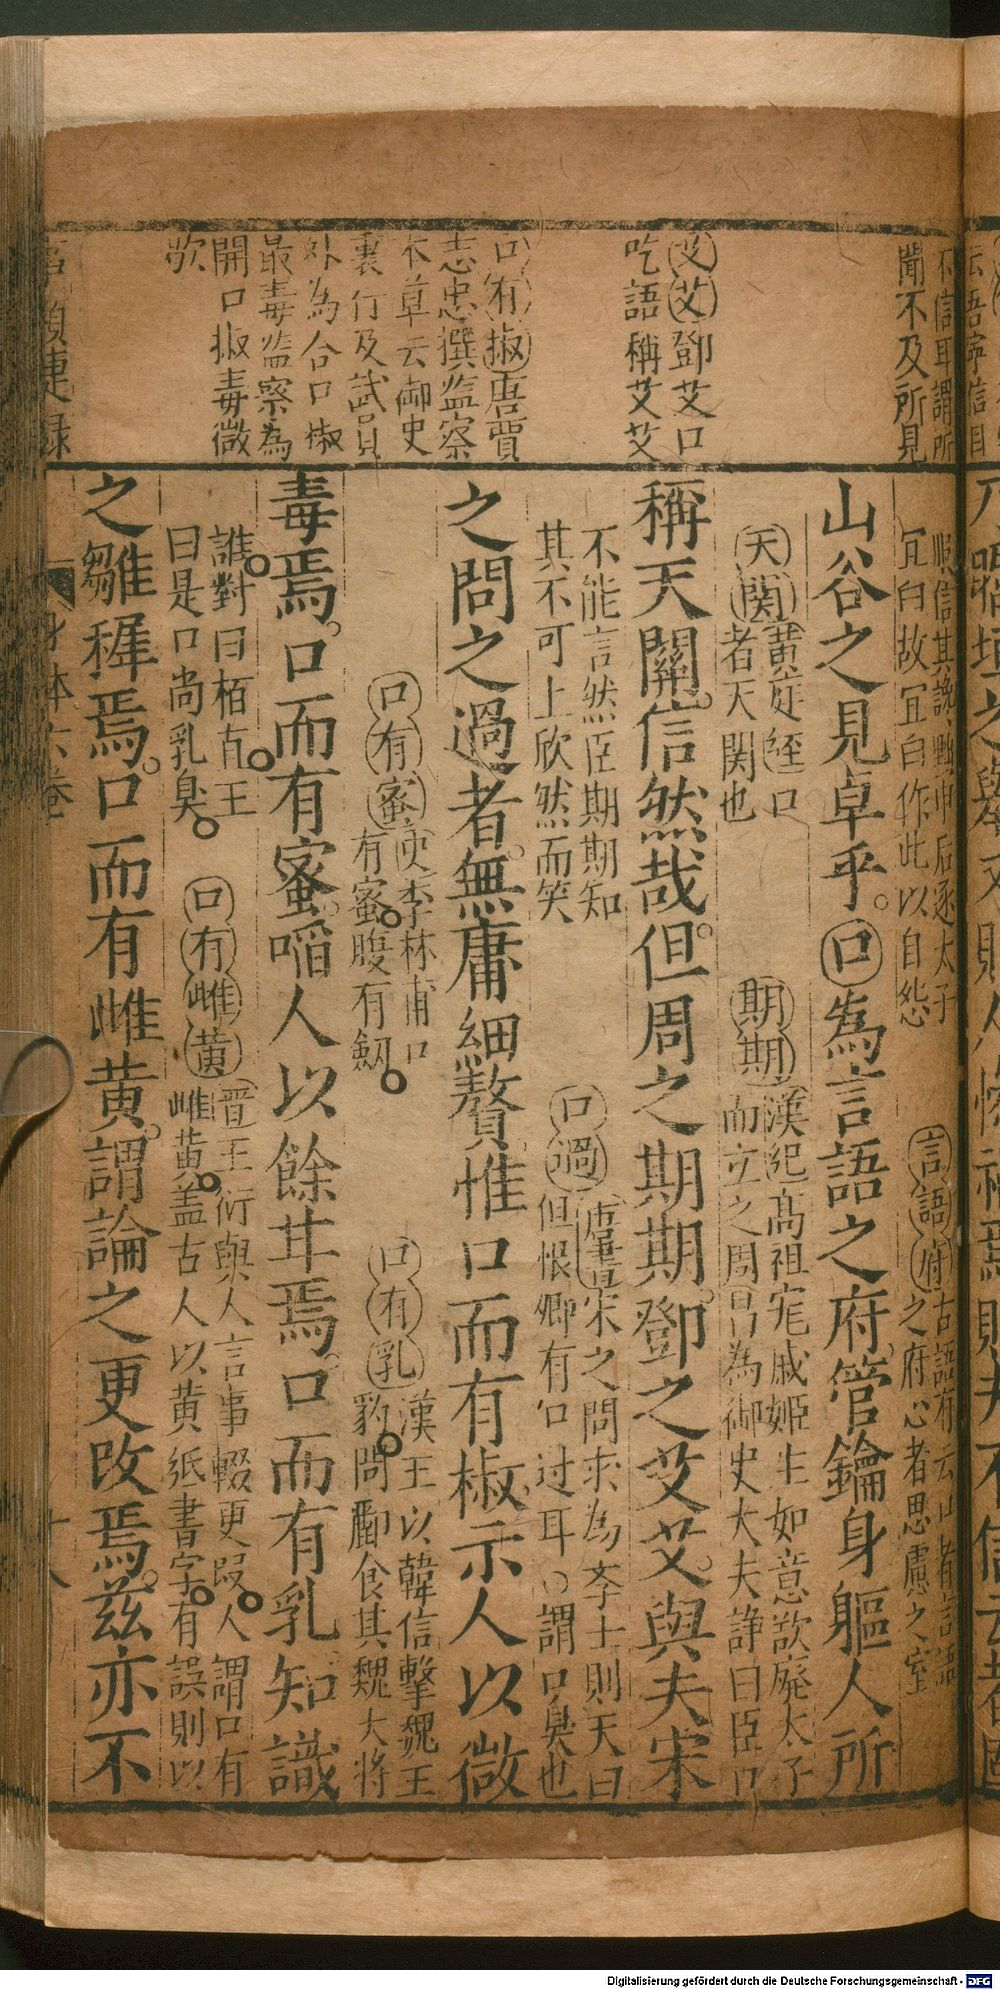 不信耳謂所
聞不及所見
艾艾鄧艾口
吃語稱艾艾
口有椒唐賈
志忠撰监察
本草云御史
裏行及試員
外為合口椒
最毒监察為
開口椒毒微
歇
冝臼故冝白作此以自怨
言語府古語有云口者言語
之府心者思慮之室
山谷之見卓乎口為言語之府管鑰身軀人所
天関黄庭經口
者天関也
期期漢紀髙祖寵戚姬生如意欲廢太子
而立之周昌為御史大夫諍曰臣口
稱天關信然哉但周之期期鄧之艾艾與夫宋
不能言然臣期期知
其不可上欣然而笑
口過唐書宋之問求為李士則天曰
但恨卿有口过耳謂口臭也
之問之過者無庸細贅惟口而有椒示人以微
口有蜜唐李林甫口
有蜜腹有劒
口有乳漢王以韓信擊魏王
豹問酈食其魏大将
毒焉口而有蜜啗人以餘甘焉口而有乳知識
誰對曰栢直王
曰是口尚乳臭
口有雌黄晋王衍與人言事輟更叚人謂口有
雌黄盖古人以黄紙書字有誤則以
之雛稺焉口而有雌黄謂論之更改焉兹亦不
身体六卷
Digitalisierung gefördert durch die Deutsche Forschungsgemeinschaft - DFG